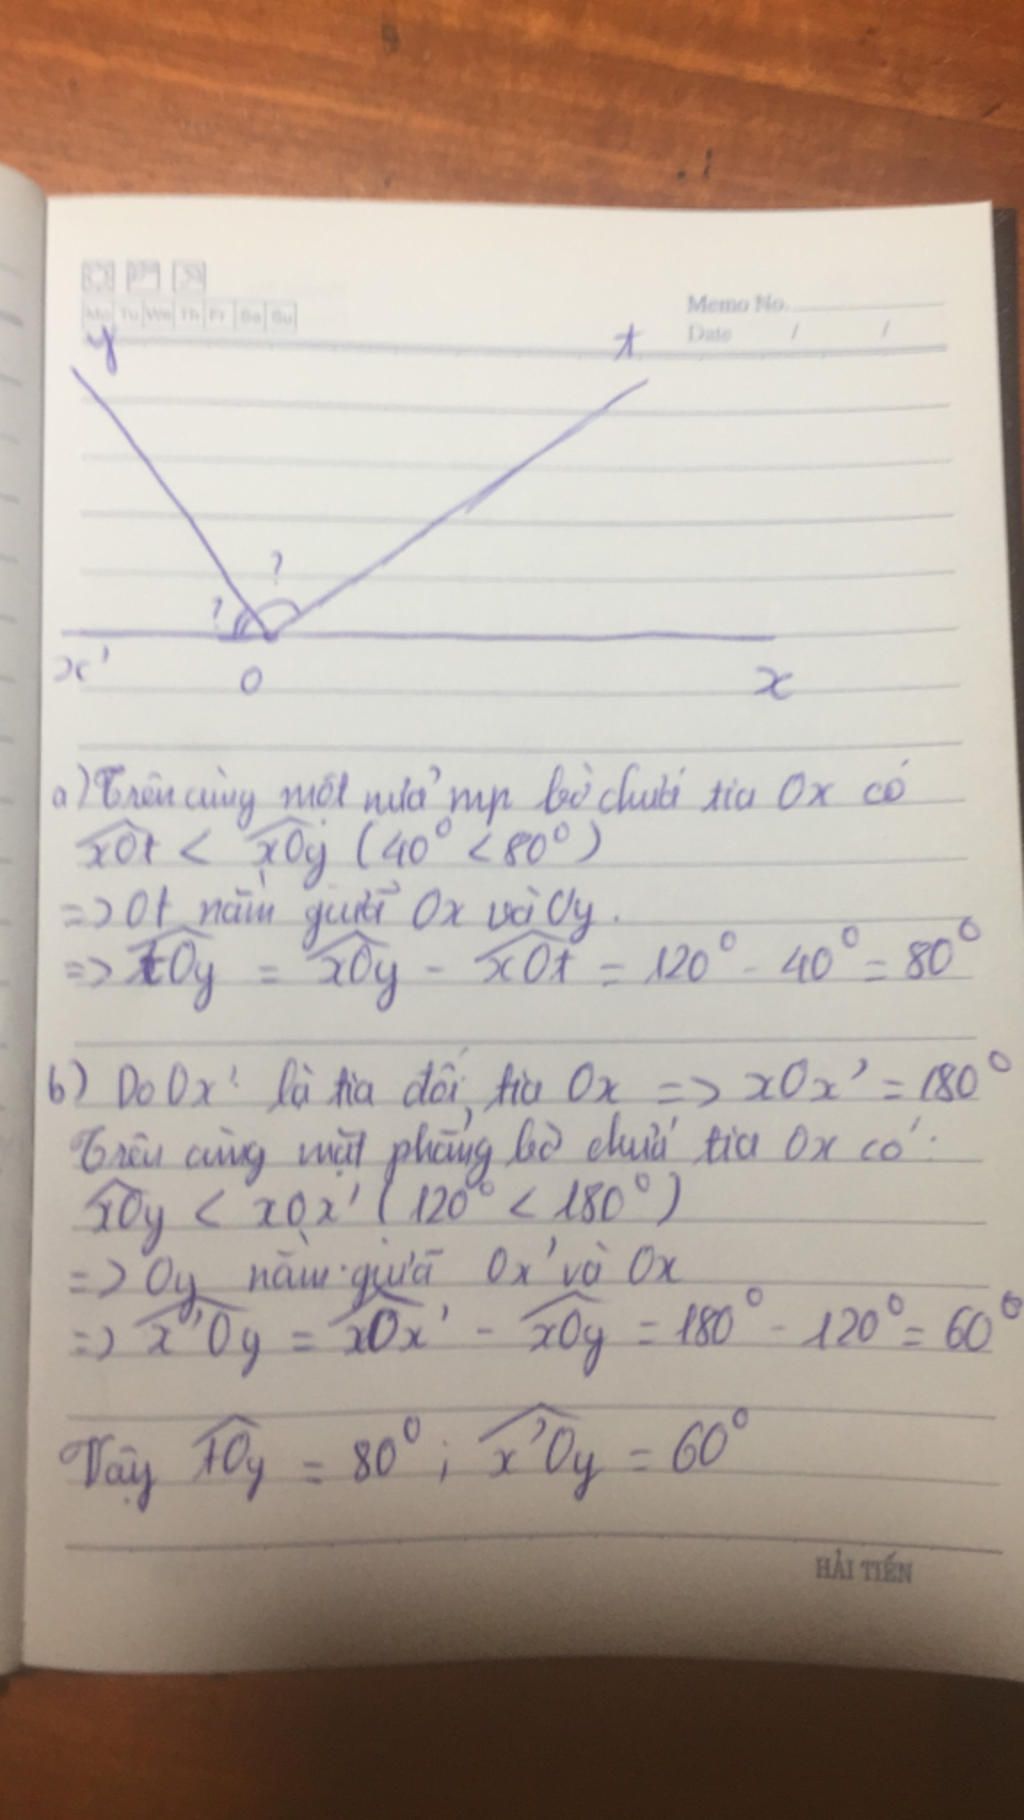 Mo Tu We Th Fr Sa Su
Memo No.
Date / /
y t
?
?
x' O x
a) Trên cùng một nửa mp bờ chứa tia Ox có
xOt < xOy (40° < 80°)
=> Ot nằm giữa Ox và Oy.
=> tOy = xOy - xOt = 120° - 40° = 80°
b) Do Ox' là tia đối tia Ox => xOx' = 180°
Trên cùng mặt phẳng bờ chứa tia Ox có:
xOy < xOx' (120° < 180°)
=> Oy nằm giữa Ox' và Ox
=> x'Oy = xOx' - xOy = 180° - 120° = 60°
Vậy tOy = 80° ; x'Oy = 60°
HẢI TIẾN